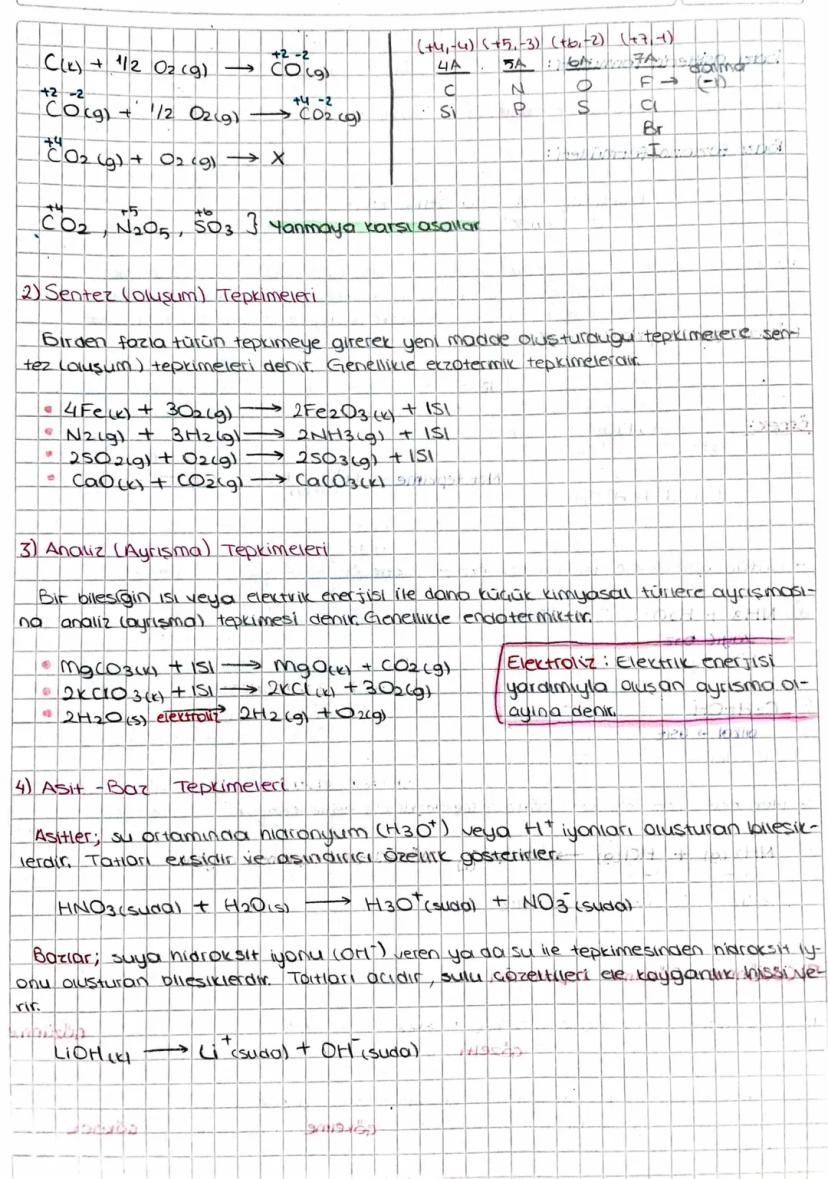 C(k) + 1/2 O2(g) → +2 -2 CO(g)
+2 -2 CO(g) + 1/2 O2(g) → +4 -2 CO2(g)
+4 CO2(g) + O2(g) → X
(+4,-4) (+5,-3) (+6,-2) (+7,-1)
4A 5A 6A 7A
C N O F → daima (-1)
Si P S Cl
Br
I
+4 CO2, +5 N2O5, +6 SO3 } Yanmaya karsı asallar
2) Sentez (oluşum) Tepkimeleri
Birden fazla türün tepkimeye girerek yeni madde oluşturduğu tepkimelere sen-
tez (oluşum) tepkimeleri denir. Genellikle ekzotermik tepkimelerdir.
• 4Fe(k) + 3O2(g) → 2Fe2O3(k) + ISI
• N2(g) + 3H2(g) → 2NH3(g) + ISI
• 2SO2(g) + O2(g) → 2SO3(g) + ISI
• CaO(k) + CO2(g) → CaCO3(k)
3) Analiz (Ayrışma) Tepkimeleri
Bir bileşiğin ısı veya elektrik enerjisi ile daha küçük kimyasal türlere ayrışması-
na analiz (ayrışma) tepkimesi denir. Genellikle endotermiktir.
• MgCO3(k) + ISI → MgO(k) + CO2(g)
• 2KClO3(k) + ISI → 2KCl(k) + 3O2(g)
• 2H2O(s) elektroliz → 2H2(g) + O2(g)
Elektroliz : Elektrik enerjisi
yardımıyla oluşan ayrışma ol-
ayına denir.
4) Asit - Baz Tepkimeleri
Asitler; su ortamında hidronyum (H3O+) veya H+ iyonları oluşturan bileşik-
lerdir. Tatları ekşidir ve aşındırıcı özellik gösterirler.
HNO3(suda) + H2O(s) → H3O+(suda) + NO3-(suda)
Bazlar; suya hidroksit iyonu (OH-) veren ya da su ile tepkimesinden hidroksit iy-
onu oluşturan bileşiklerdir. Tatları acıdır, sulu çözeltileri ele kayganlık hissi ve-
rir.
LiOH(k) → Li+(suda) + OH-(suda)